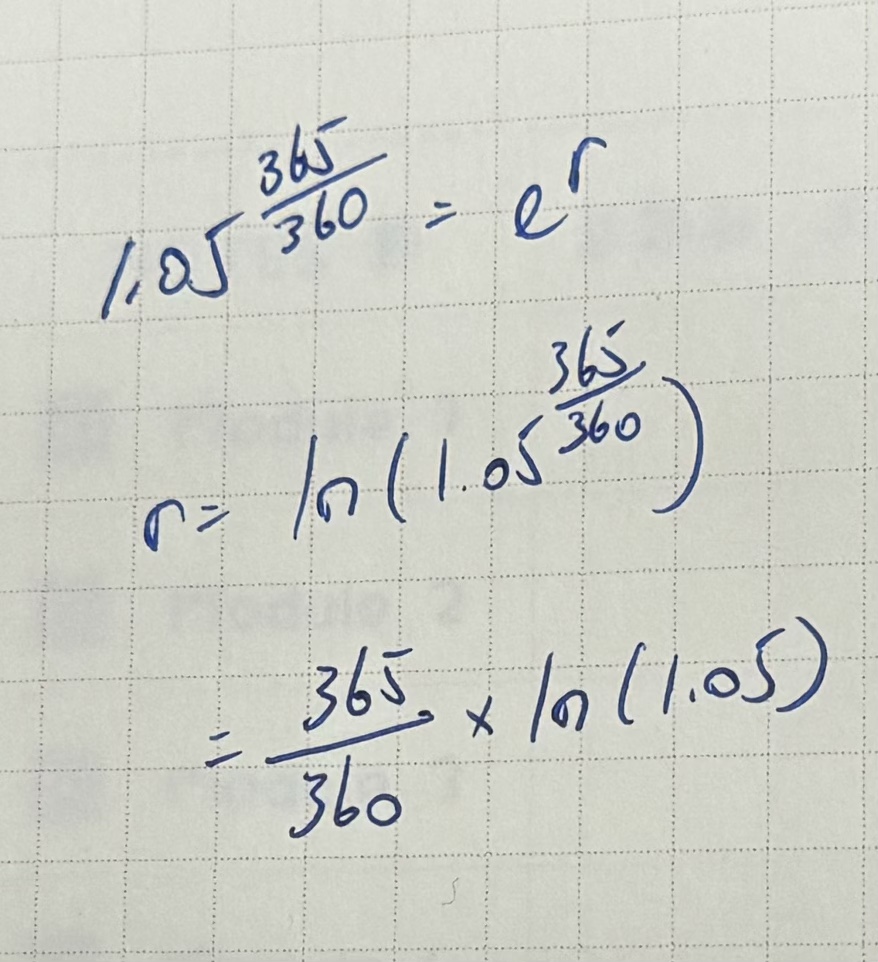 1.05^(365/360) = e^r
r = ln(1.05^(365/360))
= 365/360 × ln(1.05)